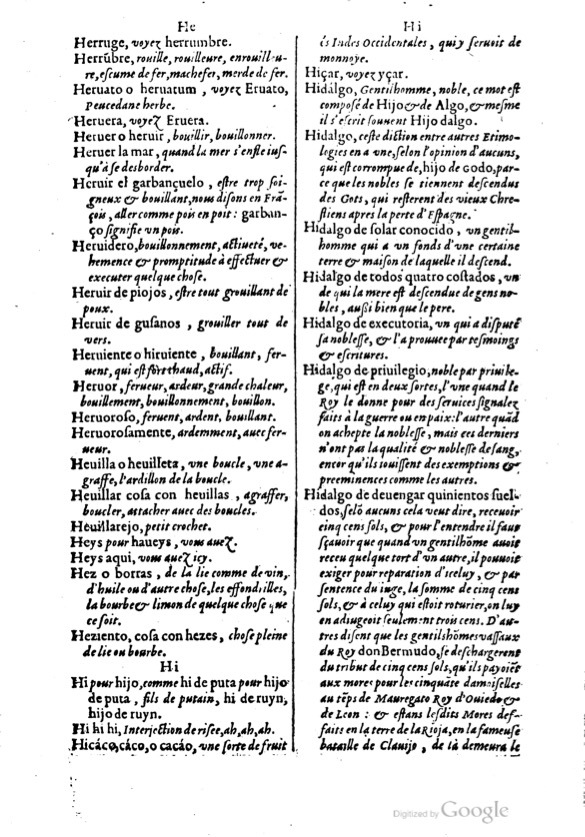 He
Herruge, voyez herrumbre.
Herrũbre, rouille, rouilleure, enrouillu-
re, escume de fer, machefer, merde de fer.
Heruato o heruatum, voyez Eruato,
Peucedane herbe.
Heruera, voyez Eruera.
Heruer o heruir, bouillir, bouillonner.
Heruer la mar, quand la mer s'enfle ius-
qu'à se desborder.
Heruir el garbançuelo, estre trop soi-
gneux & bouillant, nous disons en Frã-
çois, aller comme pois en poit: garban-
ço signifie un pois.
Heruidero, bouillonnement, actiueté, ve-
hemence & promptitude à effectuer &
executer quelque chose.
Heruir de piojos, estre tout grouillant de
poux.
Heruir de gusanos, grouiller tout de
vers.
Heruiente o hiruiente, bouillant, fer-
uent, qui est fort chaud, actif.
Heruor, ferueur, ardeur, grande chaleur,
bouillement, bouillonnement, bouillon.
Heruoroso, feruent, ardent, bouillant.
Heruorosamente, ardemment, auec fer-
ueur.
Heuilla o heuilleta, vne boucle, vne a-
graffe, l'ardillon de la boucle.
Heuillar cosa con heuillas, agraffer,
boucler, attacher auec des boucles.
Heuillarejo, petit crochet.
Heys pour haueys, vous auez.
Heys aqui, vous auez icy.
Hez o borras, de la lie comme de vin,
d'huile ou d'autre chose, les effondrilles,
la bourbe & limon de quelque chose que
ce soit.
Heziento, cosa con hezes, chose pleine
de lie ou bourbe.
Hi
Hi pour hijo, comme hi de puta pour hijo
de puta, fils de putain, hi de ruyn,
hijo de ruyn.
Hi hi hi, Interjection de risee, ah, ah, ah.
Hicáco, cáco, o cacáo, vne sorte de fruit
Hi
és Indes Occidentales, qui y seruoit de
monnoye.
Hiçar, voyez yçar.
Hidálgo, Gentilhomme, noble, ce mot est
composé de Hijo & de Algo, & mesme
il s'escrit souuent Hijo dalgo.
Hidalgo, ceste diction entre autres Etimo-
logies en a vne, selon l'opinion d'aucuns,
qui est corrompue de, hijo de Godo, par-
ce que les nobles se tiennent descendus
des Gots, qui resterent des vieux Chre-
stiens apres la perte d'Espagne.
Hidalgo de solar conocido, un gentil-
homme qui a un fonds d'une certaine
terre & maison de laquelle il descend.
Hidalgo de todos quatro costados, vn
de qui la mere est descendue de gens no-
bles, aussi bien que le pere.
Hidalgo de executoria, vn qui a disputé
sa noblesse, & l'a prouuee par tesmoings
& escritures.
Hidalgo de priuilegio, noble par priuile-
ge, qui est en deux sortes, l'vne quand le
Roy le donne pour des seruices signalez
faits à la guerre ou en paix: l'autre quãd
on achepte la noblesse, mais ces derniers
n'ont pas la qualité & noblesse de sang,
encor qu'ils iouissent des exemptions &
preeminences comme les autres.
Hidalgo de deuengar quinientos suel-
dos, selõ aucuns cela veut dire, receuoir
cinq cens sols, & pour l'entendre il faut
sçauoir que quand un gentilhõme auoit
receu quelque tort d'un autre, il pouuoit
exiger pour reparation d'iceluy, & par
sentence du iuge, la somme de cinq cens
sols, & à celuy qui estoit roturier, on luy
en adiugeoit seulement trois cens. D'au-
tres disent que les gentilshõmes vassaux
du Roy don Bermudo, se deschargerent
du tribut de cinq cens sols, qu'ils payoiẽt
aux mores pour les cinquãte damoiselles
au tẽps de Mauregato Roy d'Ouiedo &
de Leon: & estans lesdits Mores def-
faits en la terre de la Rioja, en la fameuse
bataille de Clauijo, de là demeura le
Digitized by Google